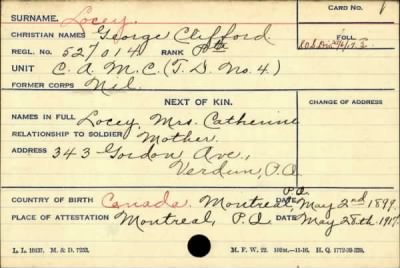 SURNAME. Locey. CARD NO. 1
CHRISTIAN NAMES George Clifford FOLL.
REGL. NO. 527014 RANK Pte
UNIT C.A.M.C. (T.D. No. 4.)
FORMER CORPS Nil.
NEXT OF KIN. CHANGE OF ADDRESS
NAMES IN FULL Locey, Mrs. Catherine
RELATIONSHIP TO SOLDIER Mother.
ADDRESS 343 Gordon Ave.,
Verdun, P.Q.
COUNTRY OF BIRTH Canada. Montreal, P.Q. DATE May 2nd 1899.
PLACE OF ATTESTATION Montreal, P.Q. DATE May 28th 1917.
L. L. 10437. M. & D. 7233. M. F. W. 22. H. Q. 1772-39-339.